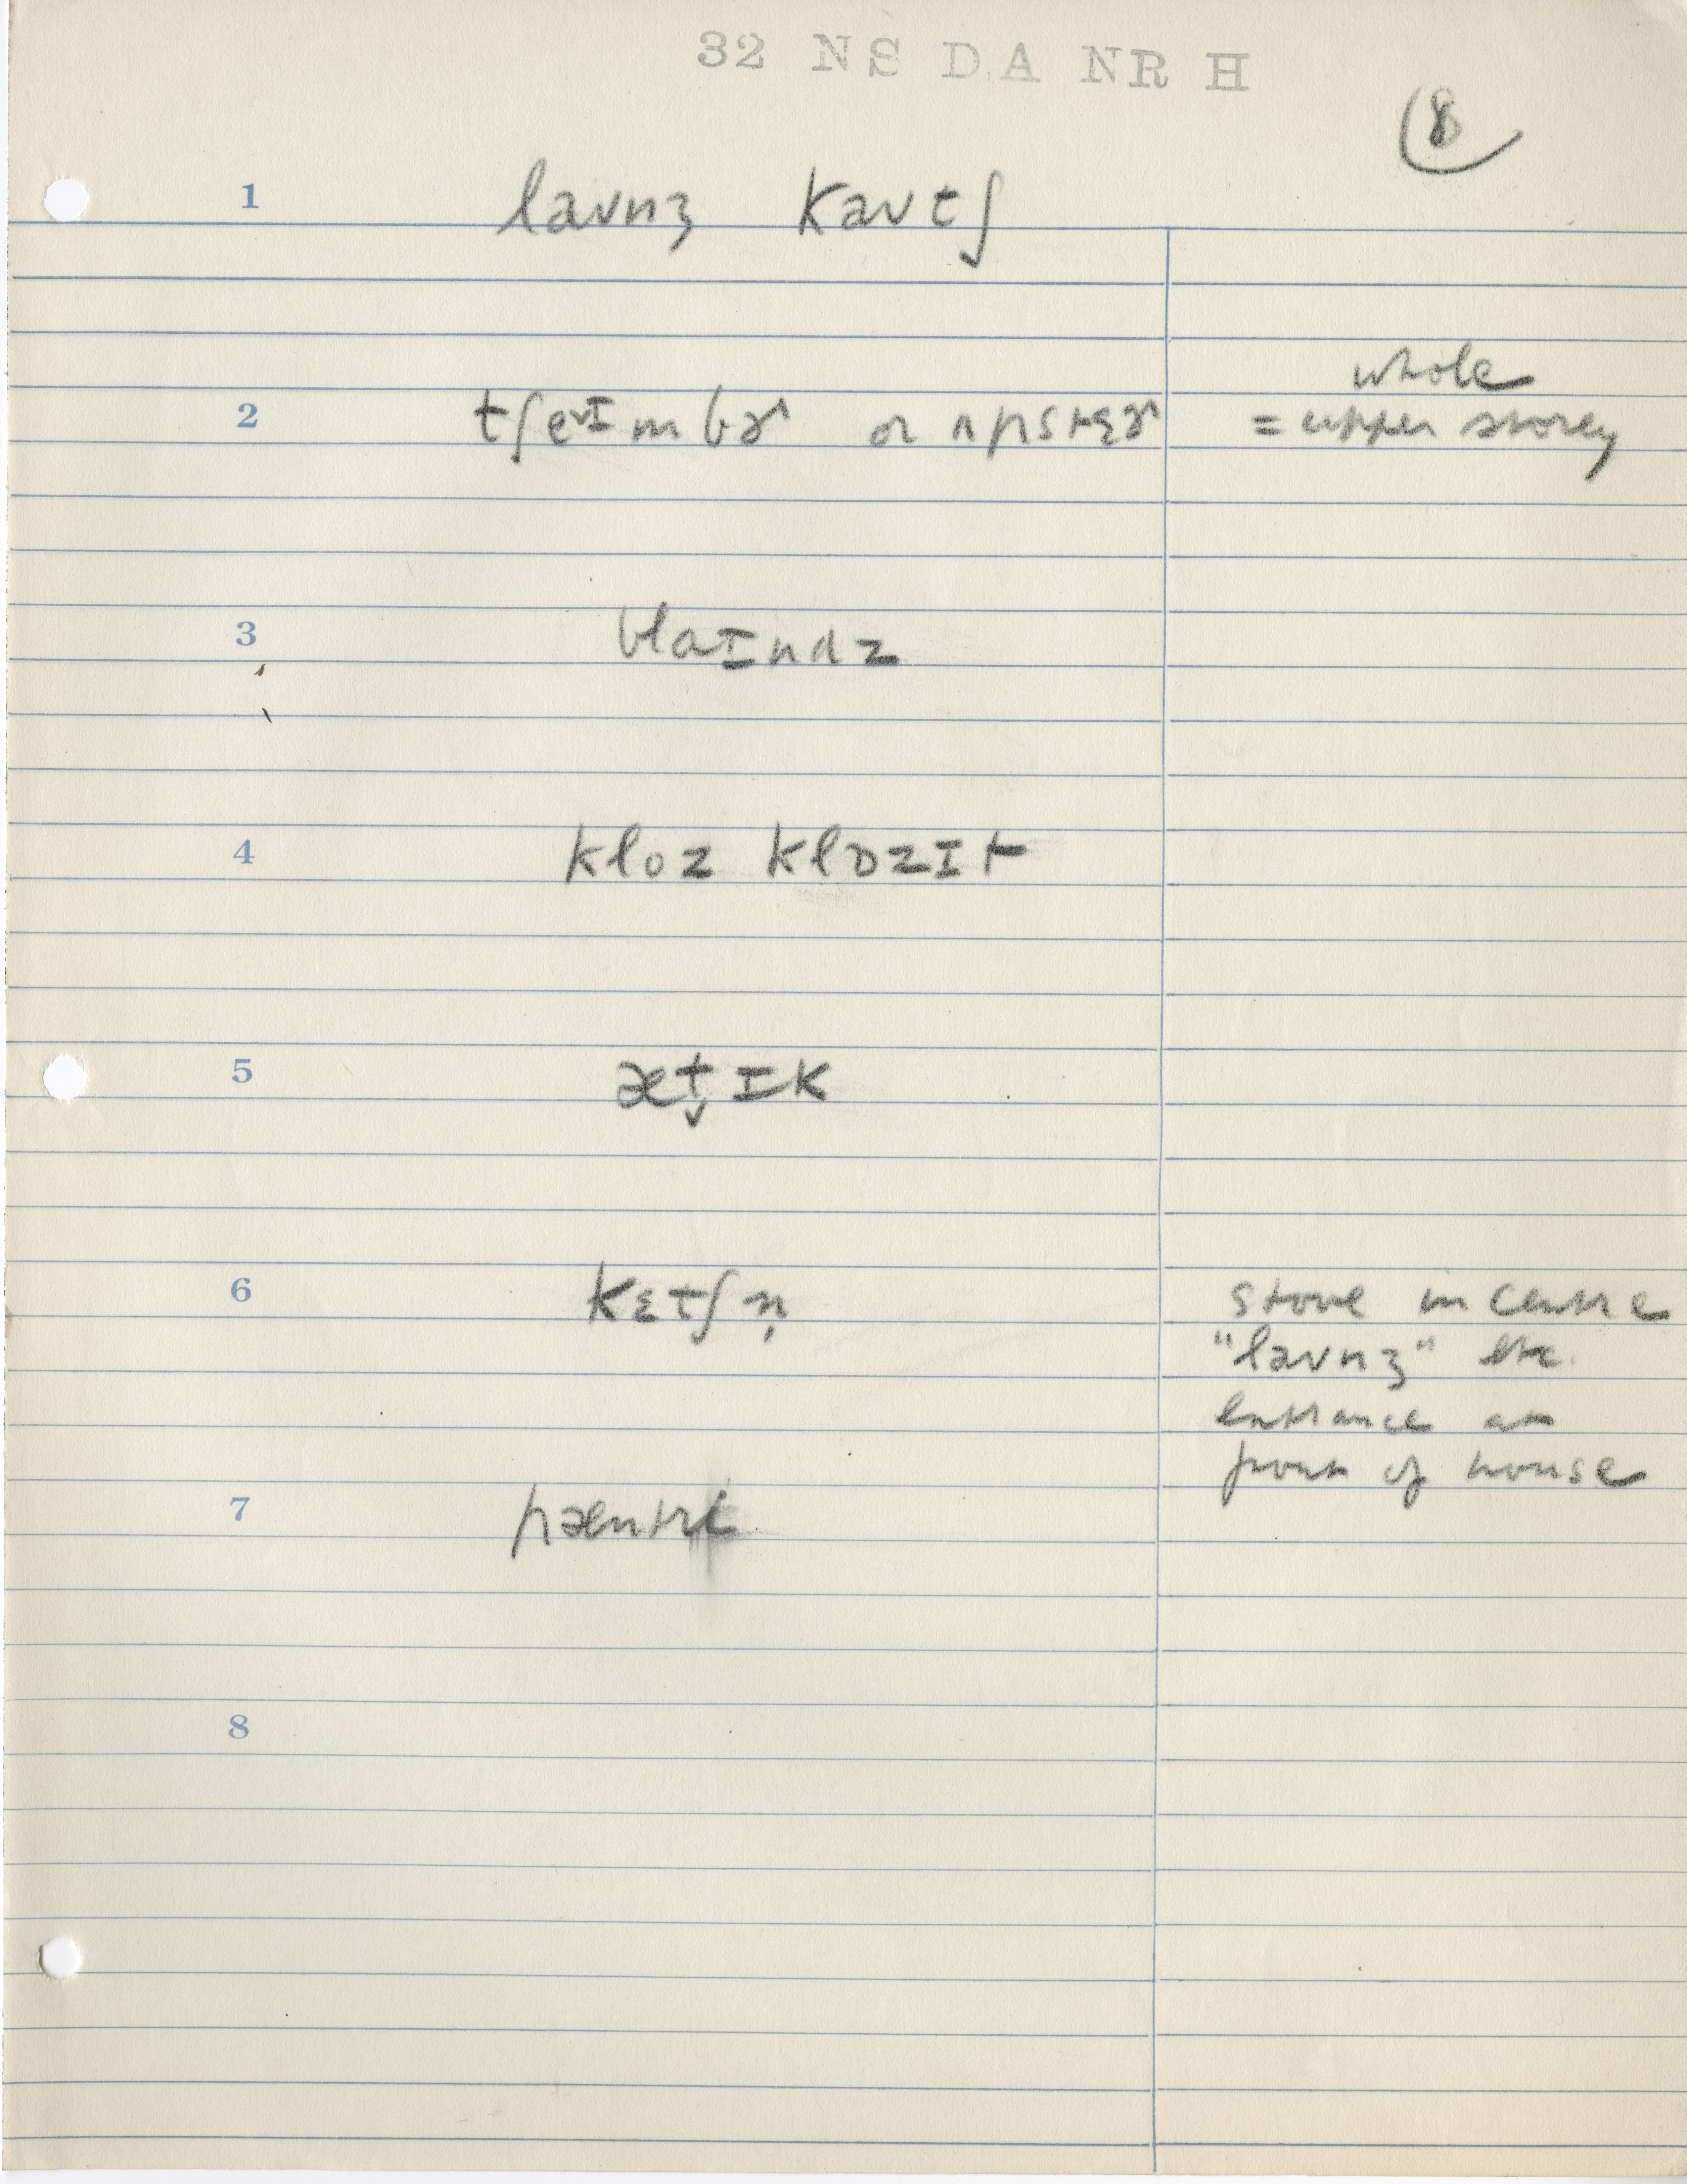 32 NS DA NR H
8
1 laʊnʒ kaʊtʃ
2 tʃeᵛɪmbɚ or ʌpstɛɚ
whole
= upper storey
3 blaɪndz
4 kloz klɒzɪt
5 æt̬ɪk
6 kɛtʃn̩
stove in centre
"laʊnʒ" etc.
entrance at
front of house
7 pæntri
8